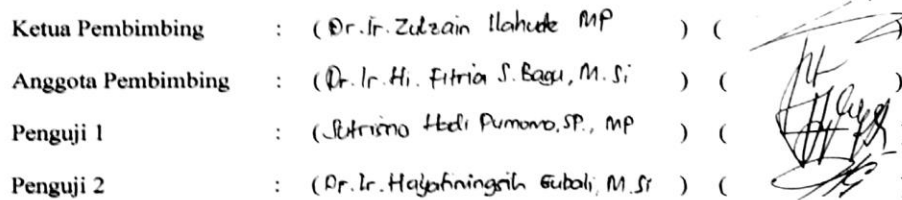 Ketua Pembimbing : (Dr. Ir. Zulzain Ilahude MP ) (
Anggota Pembimbing : (Dr. Ir. Hi. Fitria S. Bagu, M. Si ) ( )
Penguji 1 : (Sutrisno Hadi Purnomo, SP., MP ) (
Penguji 2 : (Dr. Ir. Hayatiningsih Gubali, M. Si ) (